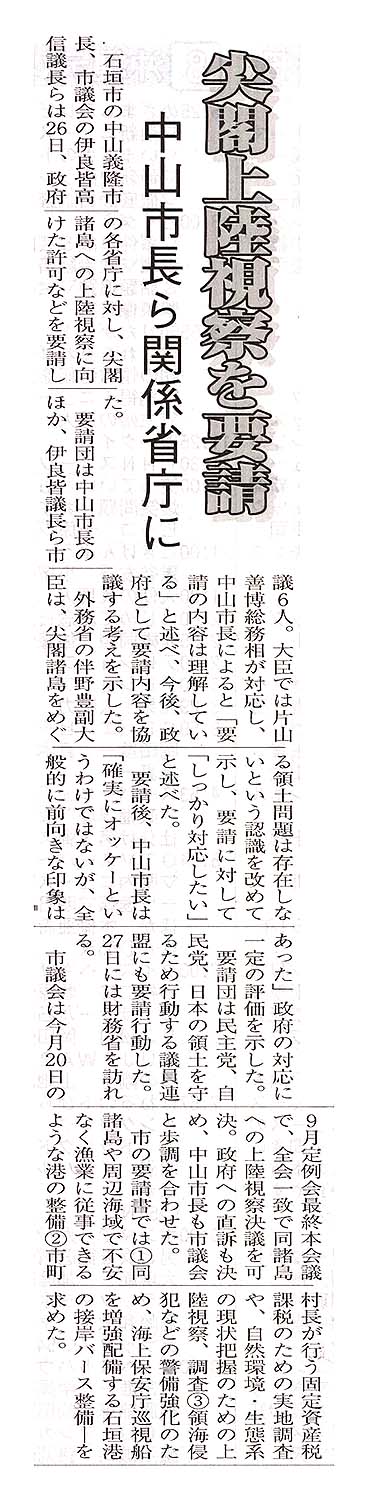 尖閣上陸視察を要請
中山市長ら関係省庁に
石垣市の中山義隆市
長、市議会の伊良皆高
信議長らは26日、政府
の各省庁に対し、尖閣
諸島への上陸視察に向
けた許可などを要請し
た。
要請団は中山市長の
ほか、伊良皆議長ら市
議6人。大臣では片山
善博総務相が対応し、
中山市長によると「要
請の内容は理解してい
る」と述べ、今後、政
府として要請内容を協
議する考えを示した。
外務省の伴野豊副大
臣は、尖閣諸島をめぐ
る領土問題は存在しな
いという認識を改めて
示し、要請に対して
「しっかり対応したい」
と述べた。
要請後、中山市長は
「確実にオッケーとい
うわけではないが、全
般的に前向きな印象は
あった」政府の対応に
一定の評価を示した。
要請団は民主党、自
民党、日本の領土を守
るため行動する議員連
盟にも要請行動した。
27日には財務省を訪れ
る。
市議会は今月20日の
9月定例会最終本会議
で、全会一致で同諸島
への上陸視察決議を可
決。政府への直訴も決
め、中山市長も市議会
と歩調を合わせた。
市の要請書では①同
諸島や周辺海域で不安
なく漁業に従事できる
ような港の整備②市町
村長が行う固定資産税
課税のための実地調査
や、自然環境・生態系
の現状把握のための上
陸視察、調査③領海侵
犯などの警備強化のた
め、海上保安庁巡視船
を増強配備する石垣港
の接岸バース整備―を
求めた。